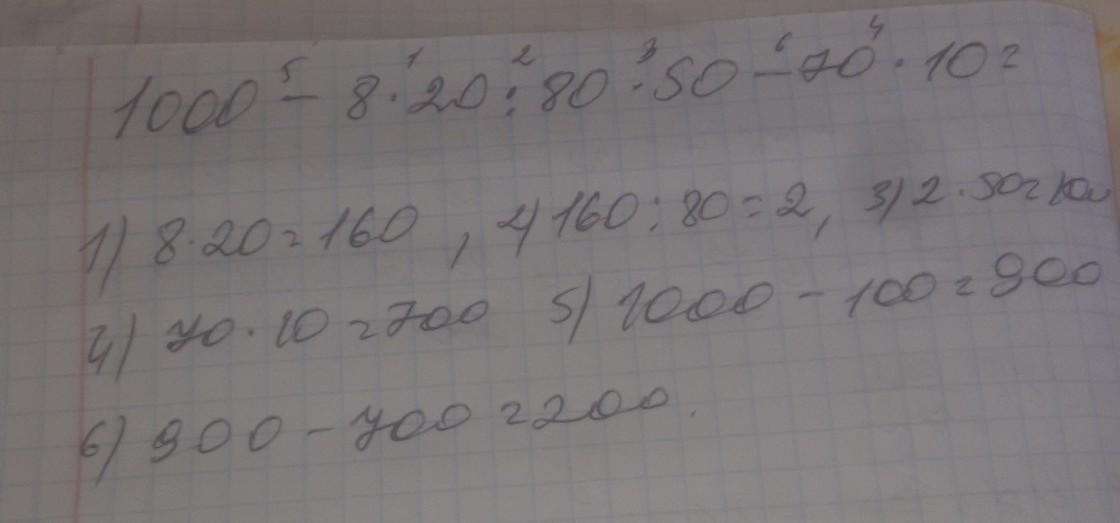 1000 - 8 · 20 : 80 · 50 - 70 · 10 =
1) 8 · 20 = 160 , 2) 160 : 80 = 2, 3) 2 · 50 = 100
4) 70 · 10 = 700 5) 1000 - 100 = 900
6) 900 - 700 = 200.